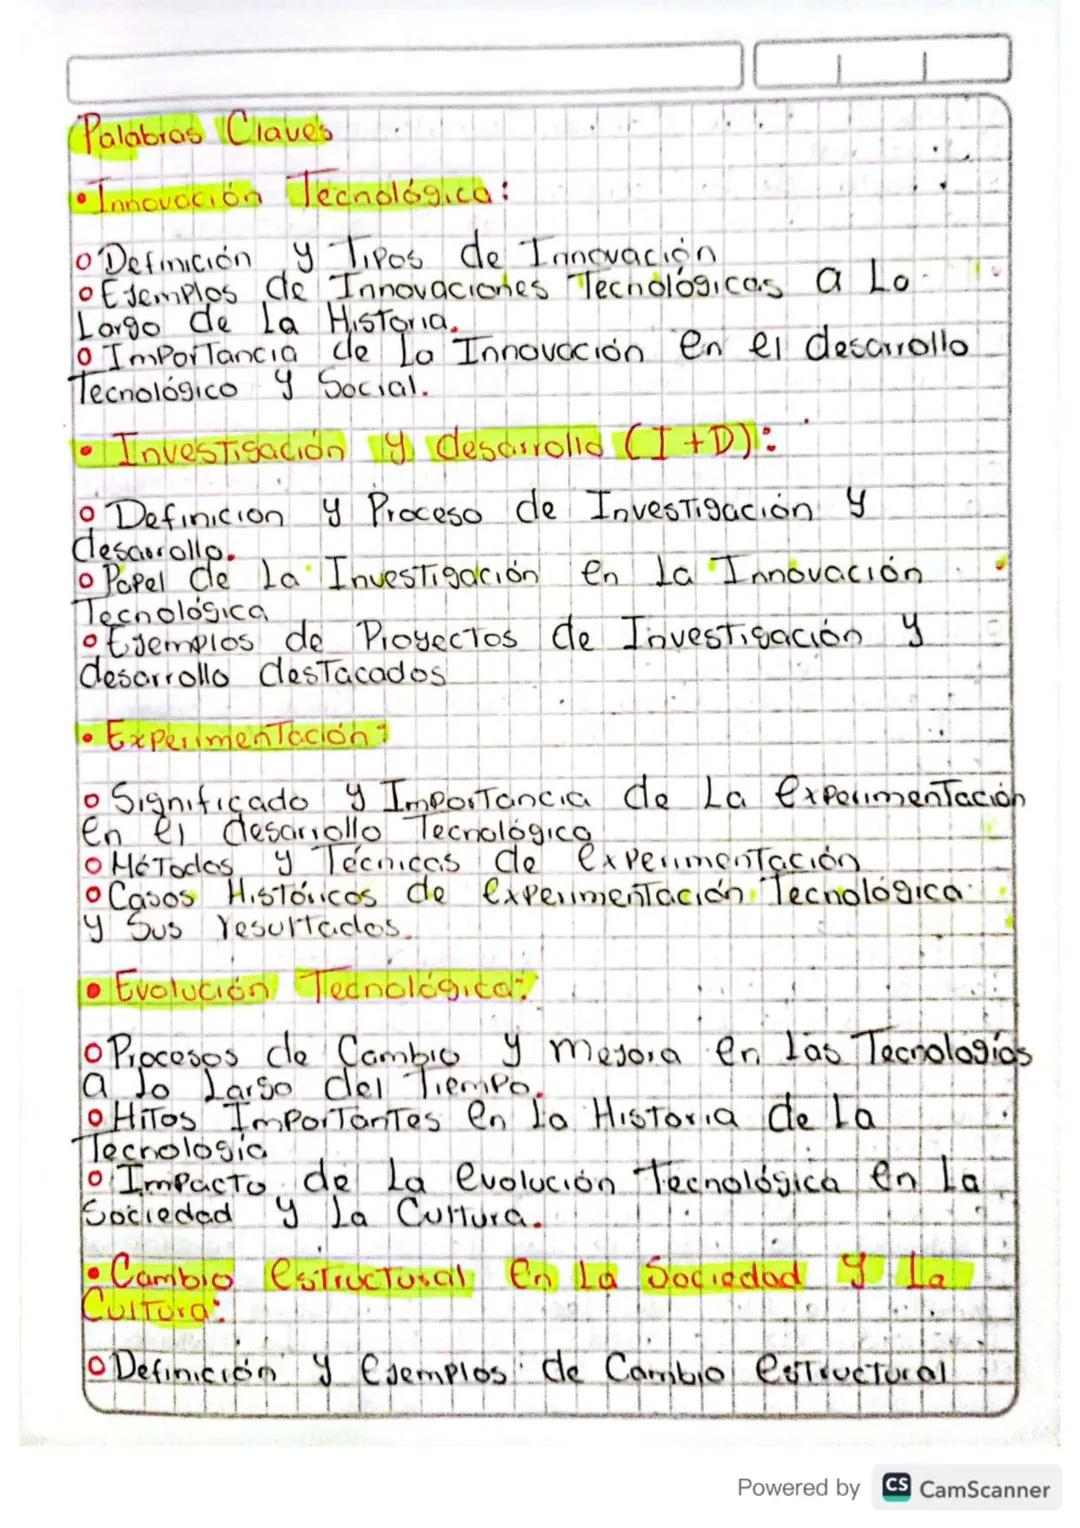 Palabras Claves
• Innovación Tecnológica:
o Definición y Tipos de Innovación
o Ejemplos de Innovaciones Tecnológicas a Lo
Largo de La Historia.
o Importancia de La Innovación en el desarrollo
Tecnológico y Social.
• Investigación y desarrollo (I+D):
o Definicion y Proceso de Investigación y
desarrollo.
o Papel de La Investigación en La Innovación
Tecnológica
o Ejemplos de Proyectos de Investigación y
desarrollo destacados
• Experimentación:
o Significado y Importancia de La experimentación
en el desarrollo Tecnológico
o Métodos y Técnicas de experimentación
o Casos Históricos de experimentación Tecnológica
y Sus resultados.
• Evolución Tecnológica:
o Procesos de Cambio y mejora en las Tecnologías
a lo Largo del Tiempo.
o Hitos Importantes en La Historia de La
Tecnología
o Impacto de La evolución Tecnológica en La
Sociedad y La Cultura.
• Cambio estructural en La Sociedad y La
Cultura:
o Definición y ejemplos de Cambio estructural
Powered by CS CamScanner